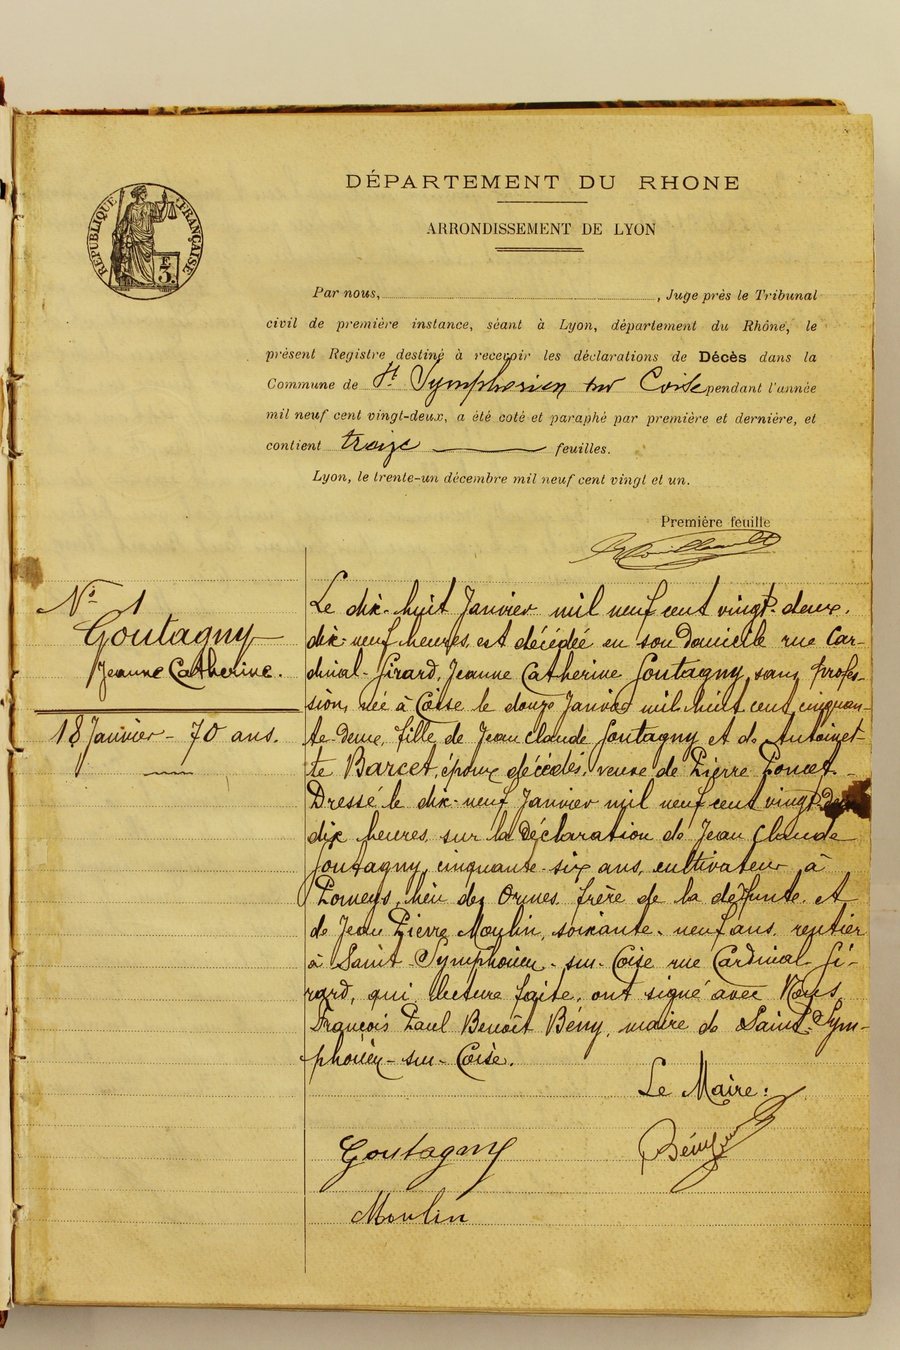 DÉPARTEMENT DU RHONE
ARRONDISSEMENT DE LYON
RÉPUBLIQUE FRANÇAISE
E
3.
Par nous, , Juge près le Tribunal
civil de première instance, séant à Lyon, département du Rhône, le
présent Registre destiné à recevoir les déclarations de Décès dans la
Commune de St Symphorien sur Coise pendant l'année
mil neuf cent vingt-deux, a été coté et paraphé par première et dernière, et
contient treize feuilles.
Lyon, le trente-un décembre mil neuf cent vingt et un.
Première feuille
No 1
Goutagny
Jeanne Catherine.
18 Janvier - 70 ans.
Le dix-huit Janvier mil neuf cent vingt-deux,
dix-neuf heures, est décédée en son domicile rue Car-
dinal-Girard, Jeanne Catherine Goutagny, sans profes-
sion, née à Coise le douze Janvier mil huit cent cinquan-
te-deux, fille de Jean Claude Goutagny et de Antoinet-
te Barcet, époux décédés, veuve de Pierre Poncet.-
Dressé le dix-neuf Janvier mil neuf cent vingt-deux
dix heures, sur la déclaration de Jean Claude
Goutagny, cinquante-six ans, cultivateur à
Pomeys, lieu des Ormes, frère de la défunte, et
de Jean Pierre Moulin, soixante-neuf ans, rentier
à Saint-Symphorien-sur-Coise rue Cardinal-Gi-
rard, qui, lecture faite, ont signé avec Nous,
François Paul Benoît Bény, maire de Saint-Sym-
phorien-sur-Coise.
Le Maire:
Goutagny
Bény
Moulin